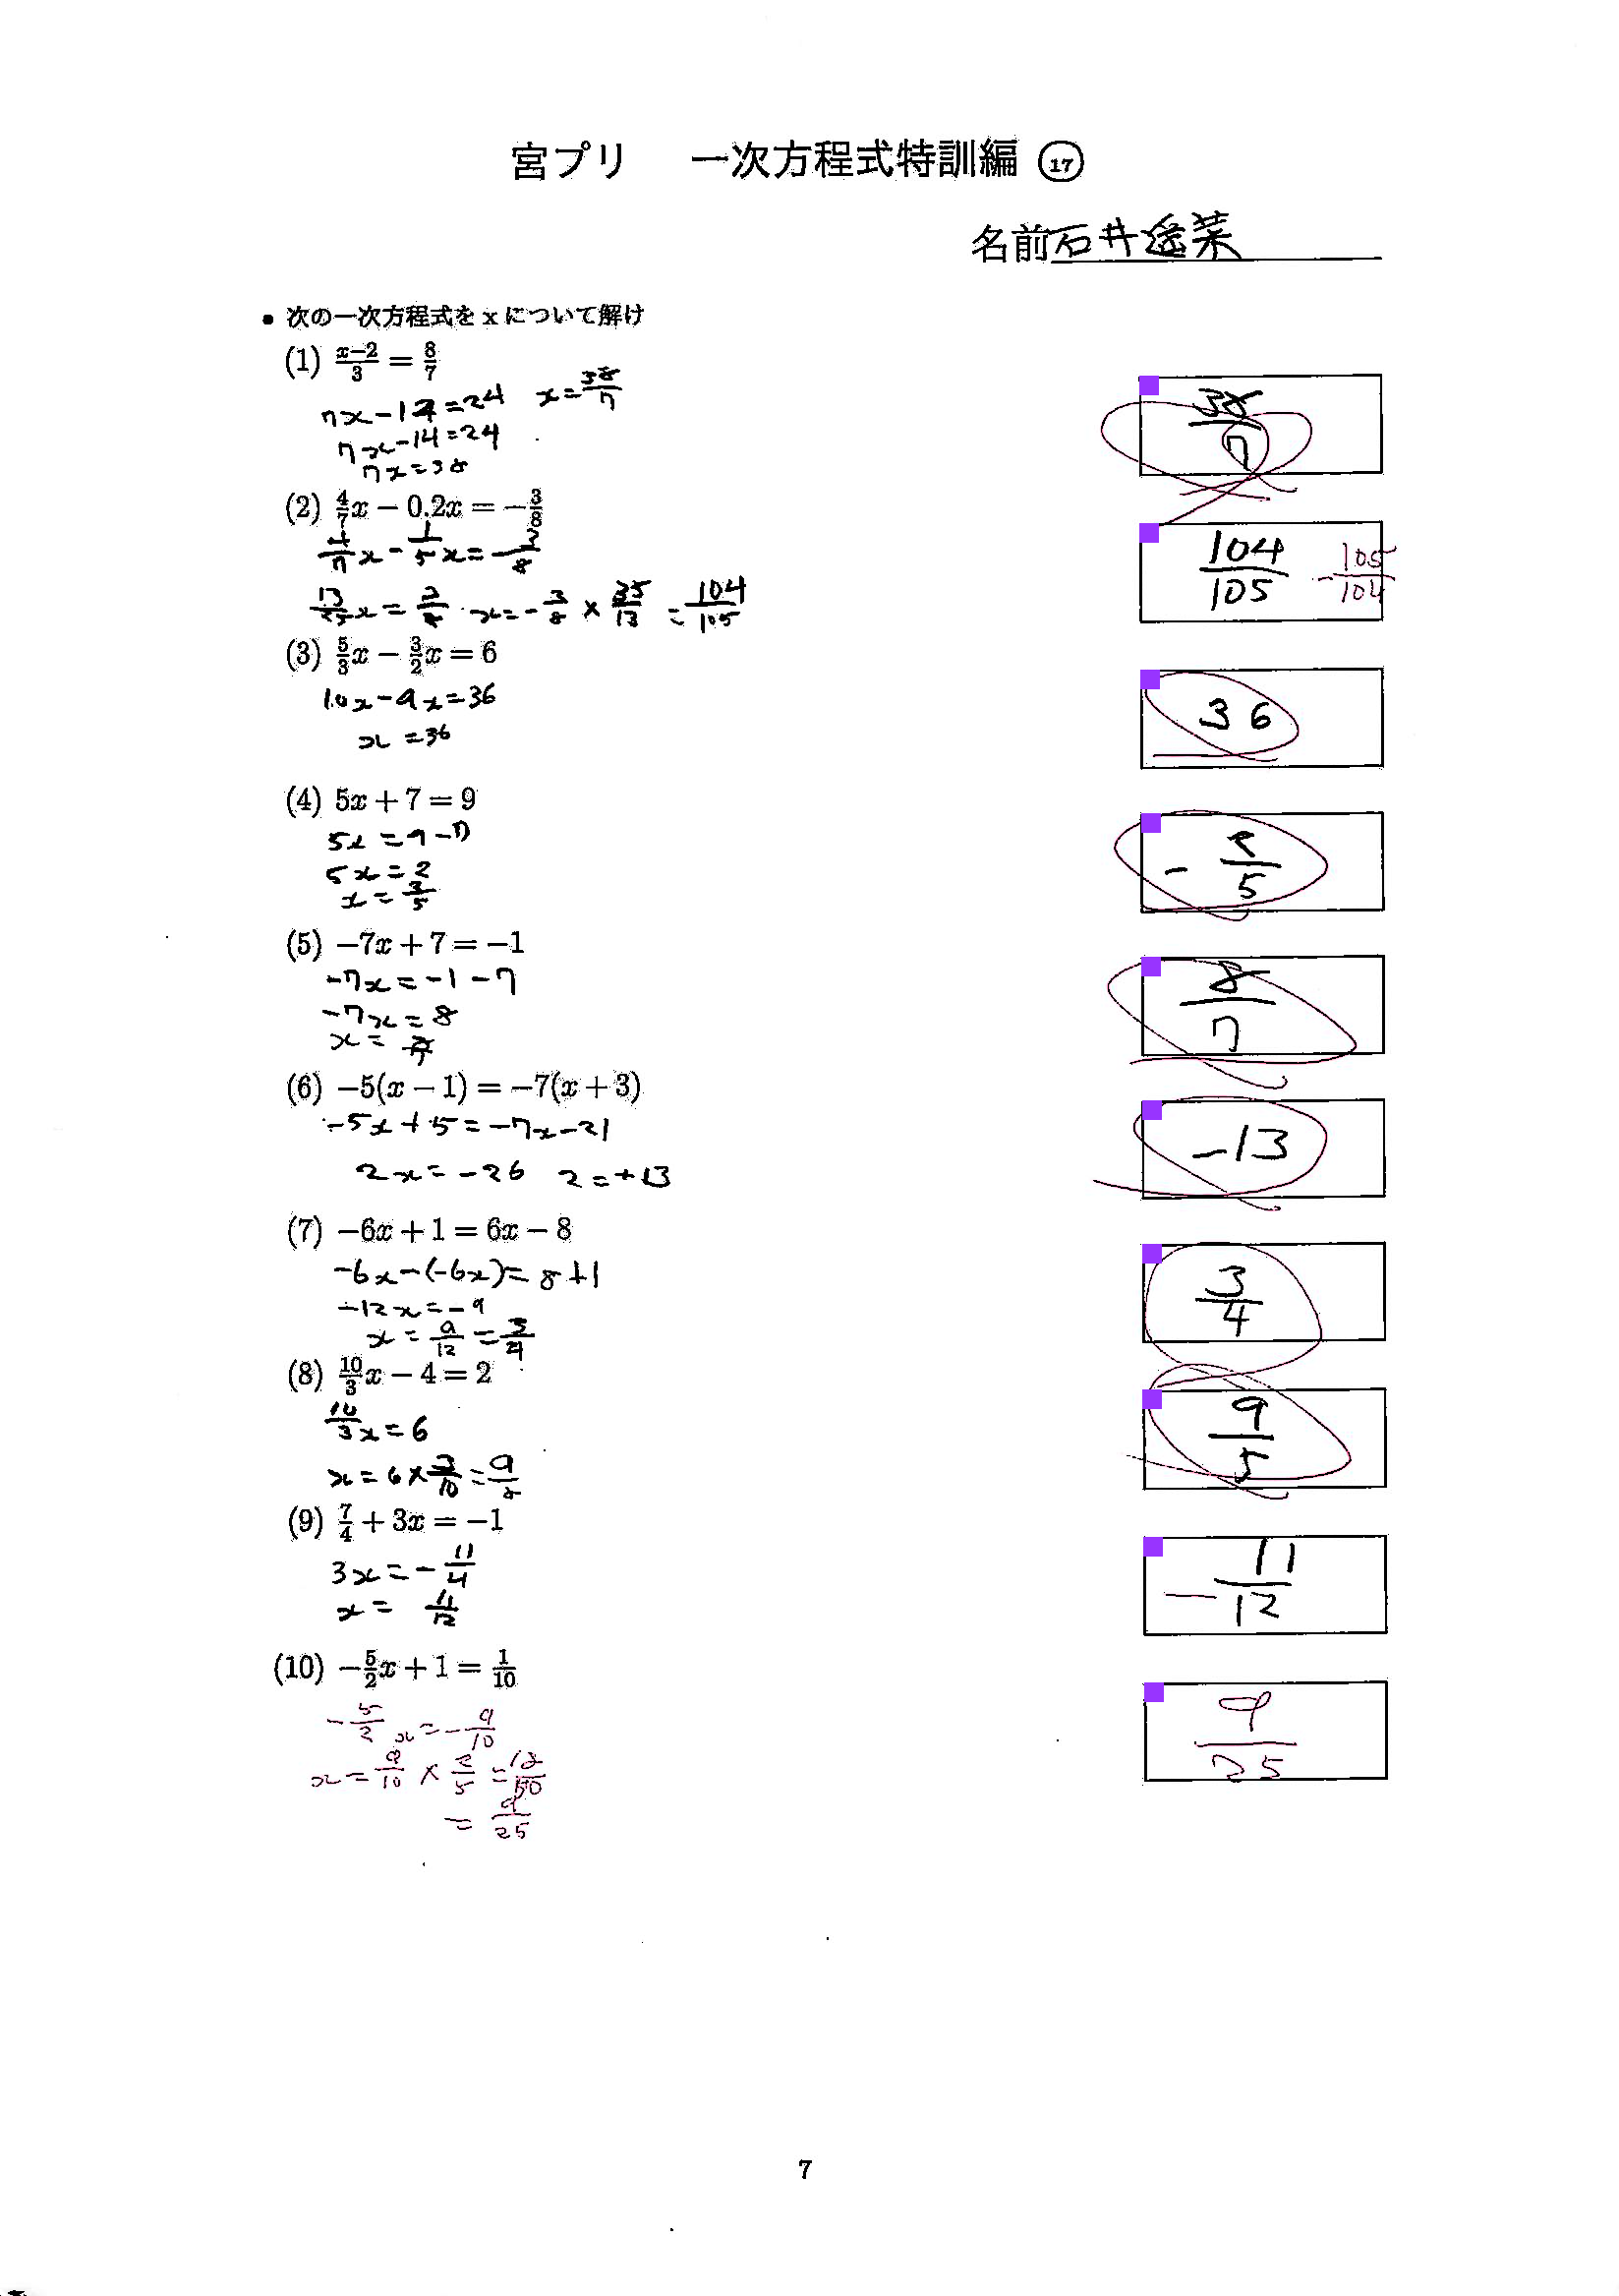 宮プリ 一次方程式特訓編 ⑰
名前 石井遥菜
• 次の一次方程式を x について解け
(1) \frac{x-2}{3} = \frac{8}{7}
7x-14=24 x=\frac{38}{7}
7x-14=24
7x=38
\frac{38}{7}
(2) \frac{4}{7}x - 0.2x = -\frac{3}{8}
\frac{4}{7}x-\frac{1}{5}x=-\frac{3}{8}
\frac{13}{35}x=\frac{3}{8} x=-\frac{3}{8}×\frac{35}{13}=\frac{104}{105}
\frac{104}{105} -\frac{105}{104}
(3) \frac{5}{3}x - \frac{3}{2}x = 6
10x-9x=36
x=36
36
(4) 5x + 7 = 9
5x=9-7
5x=2
x=\frac{2}{5}
-\frac{2}{5}
(5) -7x + 7 = -1
-7x=-1-7
-7x=8
x=\frac{8}{7}
\frac{8}{7}
(6) -5(x - 1) = -7(x + 3)
-5x+5=-7x-21
2x=-26 2=+13
-13
(7) -6x + 1 = 6x - 8
-6x-(-6x)=8+1
-12x=-9
x=\frac{9}{12}=\frac{3}{4}
\frac{3}{4}
(8) \frac{10}{3}x - 4 = 2
\frac{10}{3}x=6
x=6×\frac{3}{10}=\frac{9}{5}
\frac{9}{5}
(9) \frac{7}{4} + 3x = -1
3x=-\frac{11}{4}
x=\frac{11}{12}
-\frac{11}{12}
(10) -\frac{5}{2}x + 1 = \frac{1}{10}
-\frac{5}{2}x=-\frac{9}{10}
x=\frac{9}{10}×\frac{2}{5}=\frac{18}{50}
=\frac{9}{25}
\frac{9}{25}
7